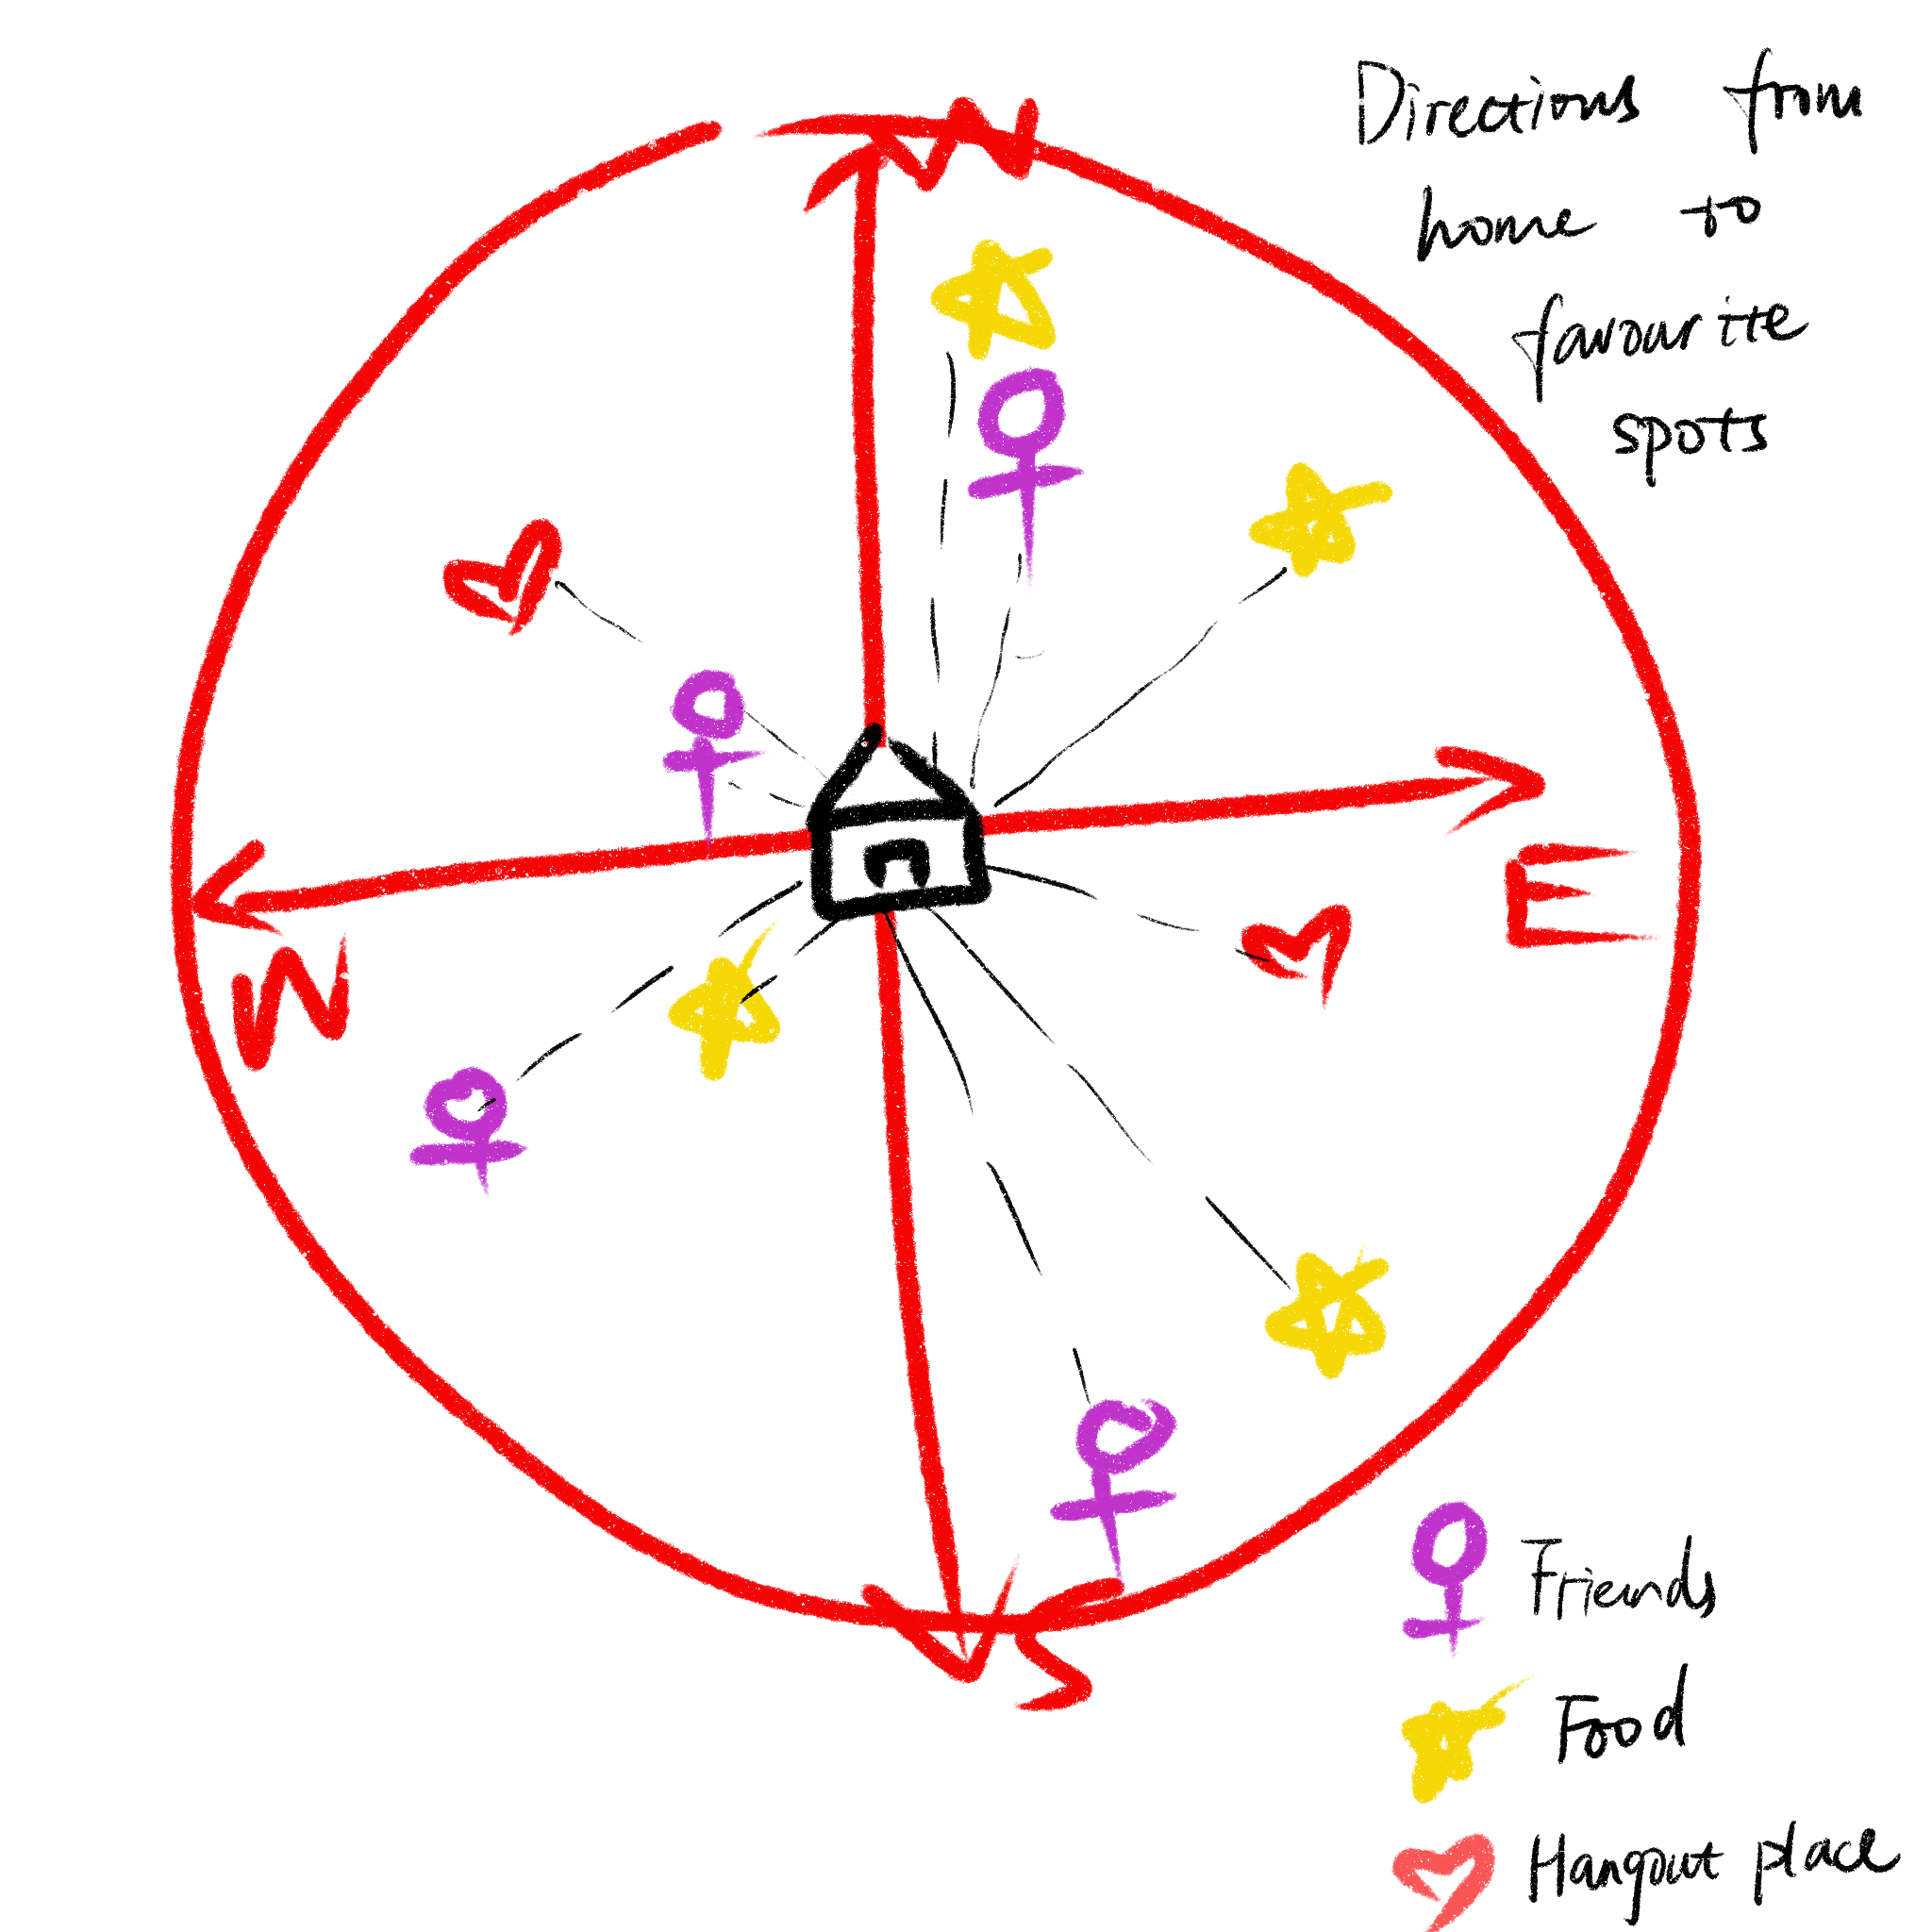 Directions from
home to
favourite
spots
N
E
W
S
Friends
Food
Hangout place